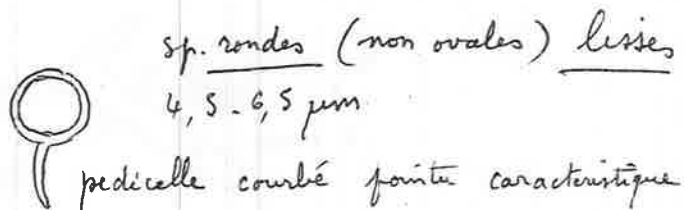 sp. rondes (non ovales) lisses
4,5-6,5 µm
pedicelle courbé pointu caracteristique